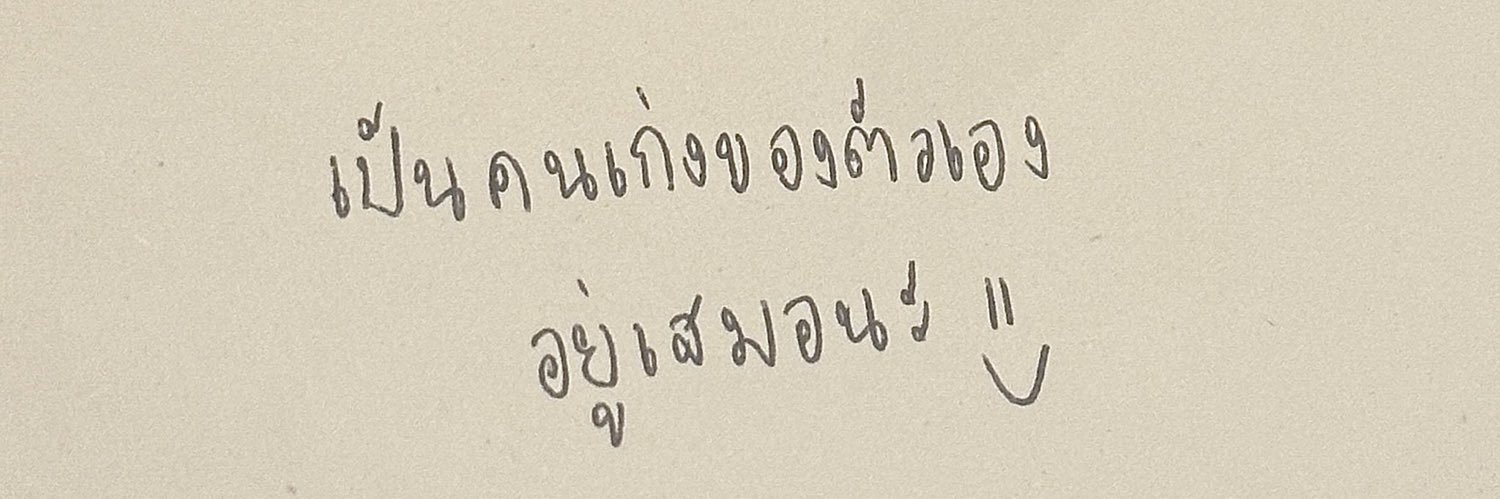 เป็นคนเก่งของตัวเอง
อยู่เสมอนะ